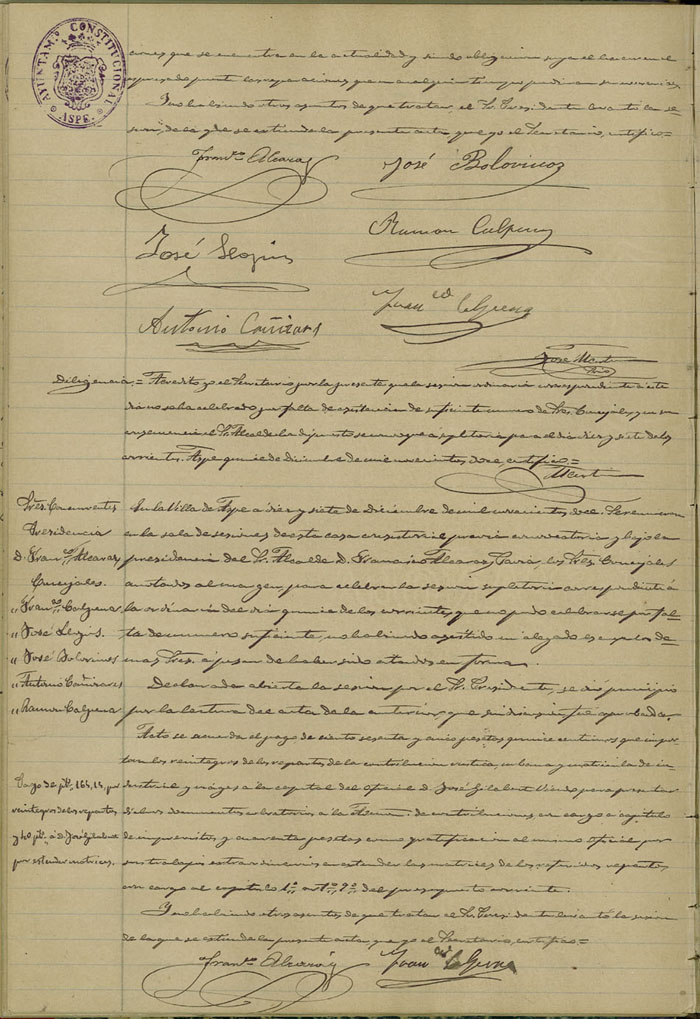 AYUNTAM.º CONSTITUCIONAL
ASPE.
ciones que se encuentra en la actualidad y siendo obligación suya el hacer en el
expresado puente las reparaciones que en cualquier tiempo pudieran ser necesarias
Y no habiendo otros asuntos de que tratar, el Sr. Presidente levantó la se-
sión, de la que se extiende la presente acta que yo el Secretario, certifico=
Fran.co Alcaraz
José Bolovinoz
José Seopis
Ramon Calpena
Antonio Cañizares
Fran.co Calpena
José Mart
Diligencia = Acredito yo el Secretario por la presente que la sesión ordinaria correspondiente a este
dia no se ha celebrado por falta de asistencia de suficiente numero de Sres. Concejales, y en su
consecuencia el Sr. Alcalde ha dispuesto se convoque a supletoria para el dia diez y siete de los
corrientes. Aspe quince de Diciembre de mil novecientos doce, certifico=
Sres. Concurrentes
Presidencia
D. Fran.co Alcaraz
Concejales.
" Fran.co Calpena
" José
" José Bolovinos
" Antonio Cañizares
" Ramon Calpena
En la Villa de Aspe a diez y siete de Diciembre de mil novecientos doce. Se reunieron
en la sala de sesiones de esta casa consistorial previa convocatoria y bajo la
presidencia del Sr. Alcalde D. Francisco Alcaraz, los Sres. Concejales
anotados al margen, para celebrar la sesión supletoria correspondiente á
la ordinaria del dia quince de los corrientes, que no pudo celebrarse por fal-
ta de numero suficiente, no habiendo asistido ni alegado escusa los de-
mas Sres. á pesar de haber sido citados en forma.
Declarada abierta la sesion por el Sr. Presidente, se dió principio
por la lectura del acta de la anterior que sin discusión fué aprobada.
Acto se acuerda el pago de ciento sesenta y cinco pesetas quince centimos que impor-
tan los reintegros de los repartos de la contribución rustica, urbana y matricula de in-
dustrial y viages a la capital del oficial D. José Gilabert para presentar
dichos documentos cobratorios á la de contribuciones con cargo a capitulo
de imprevistos y cuarenta pesetas como gratificacion al mismo oficial por
sus trabajos extraordinarios en estender las matrices de los referidos repartos
con cargo al capitulo 1º artº 9º del presupuesto corriente.
Pago de ptas. 165,15 por
reintegros de los repartos
y 40 ptas. a D. José Gilabert
por estender matrices.
Y no habiendo otros asuntos, de que tratar el Sr. Presidente levantó la sesion
de la que se estiende la presente acta, que yo el Secretario, certifico=
Fran.co Alcaraz
Fran.co Calpena